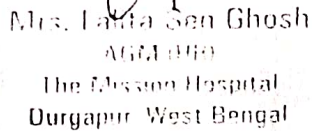 Mrs. Lalita Sen Ghosh
AGM
The Mission Hospital
Durgapur West Bengal